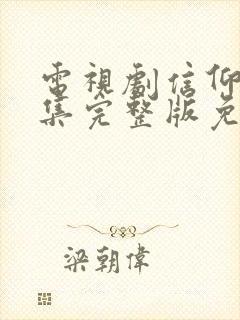 電視劇信仰
集完整版免
梁朝偉